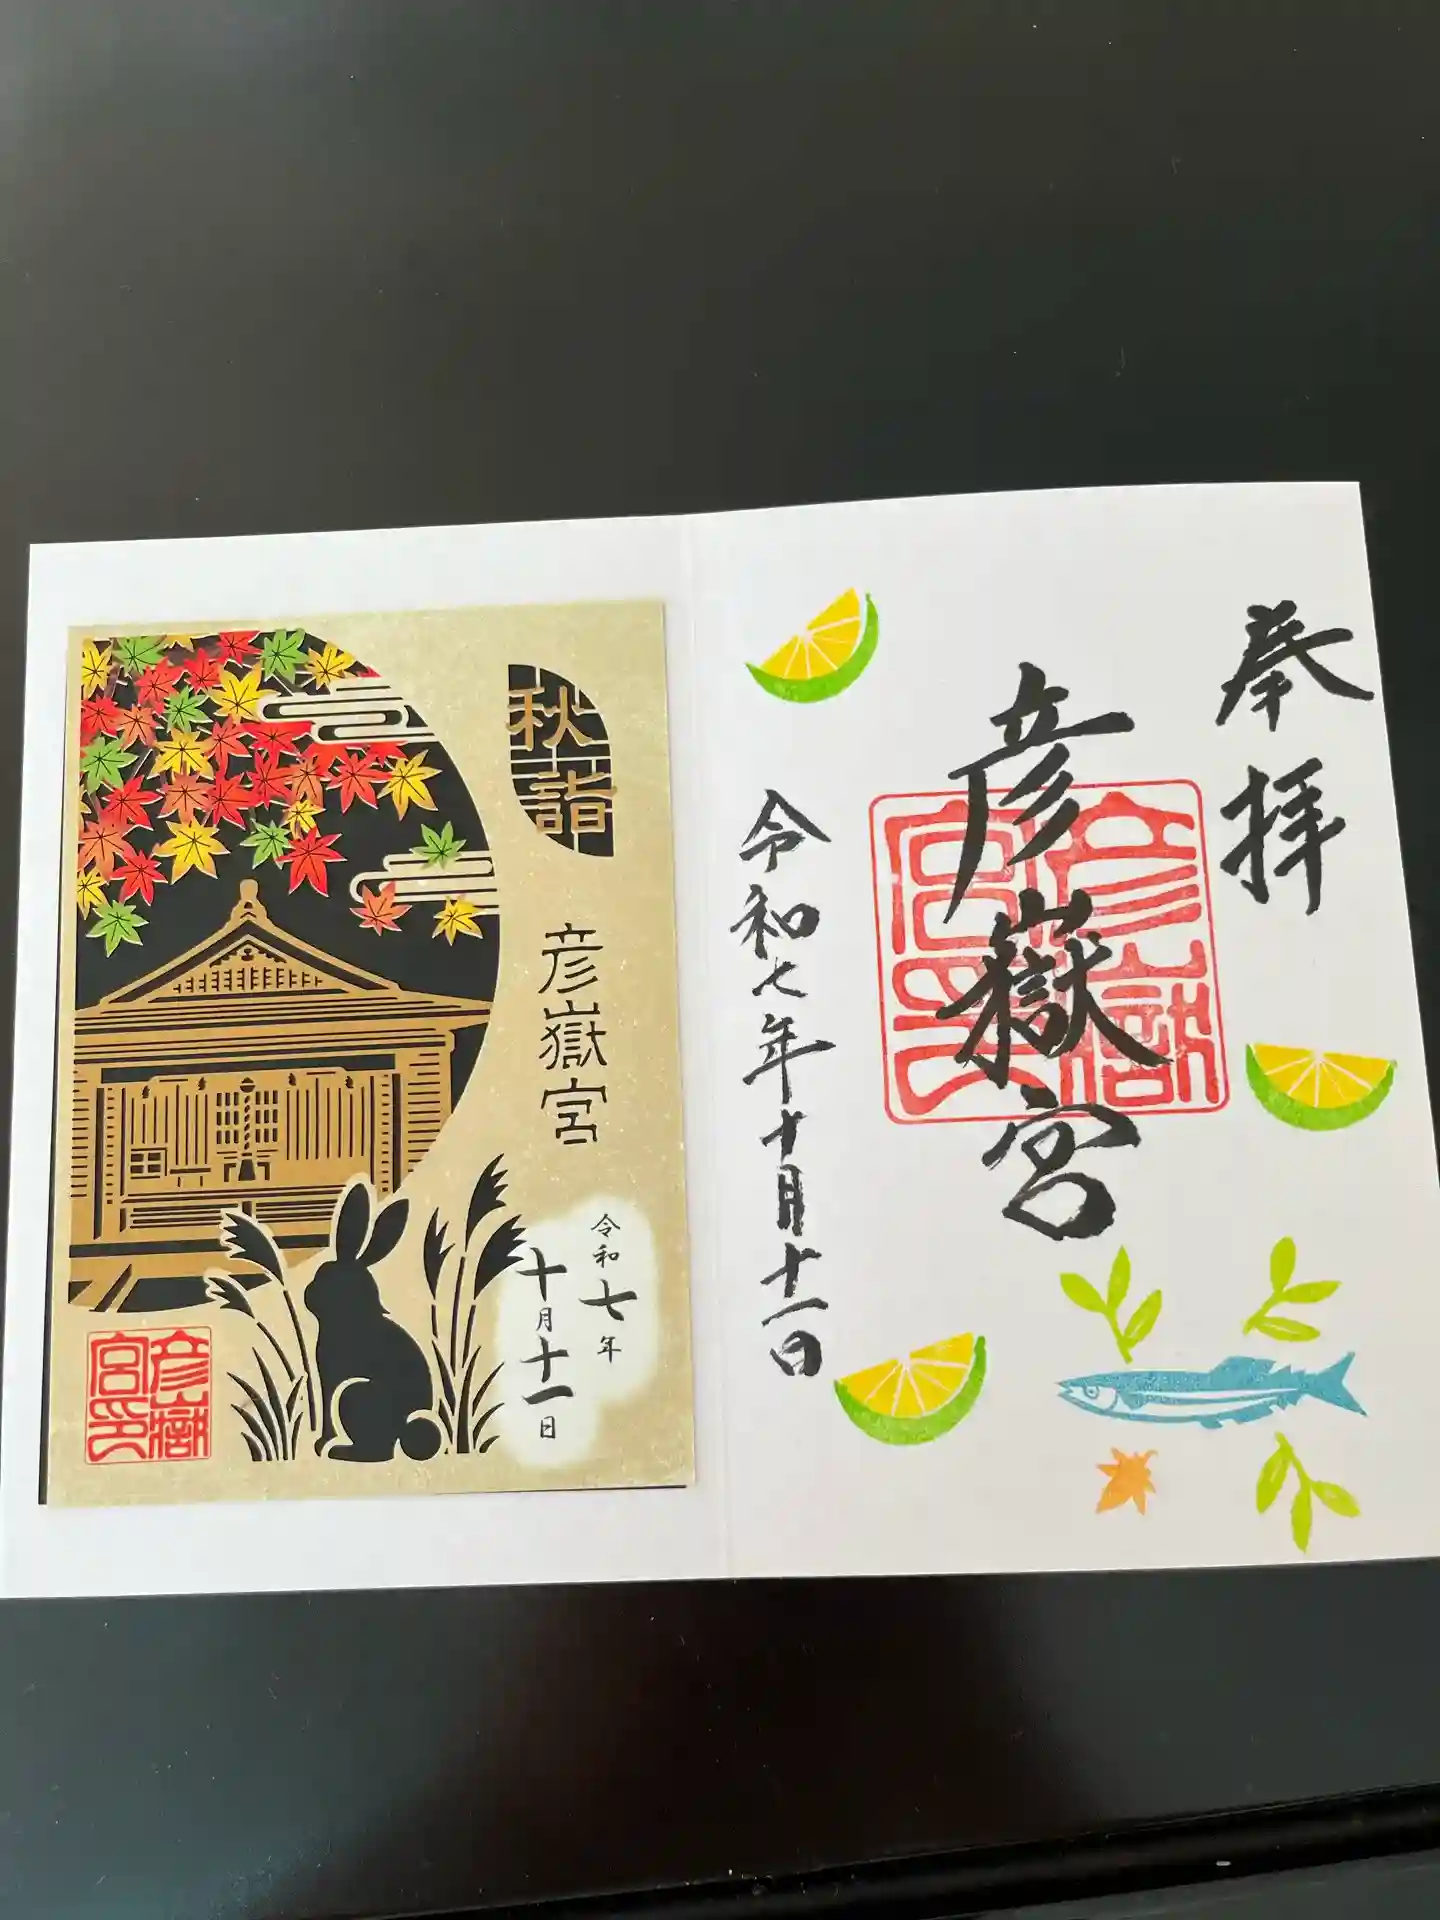 奉拝
彦嶽宮
彦嶽宮印
令和七年十月十一日
秋詣
彦嶽宮
令和七年
十月十一日
彦嶽宮印